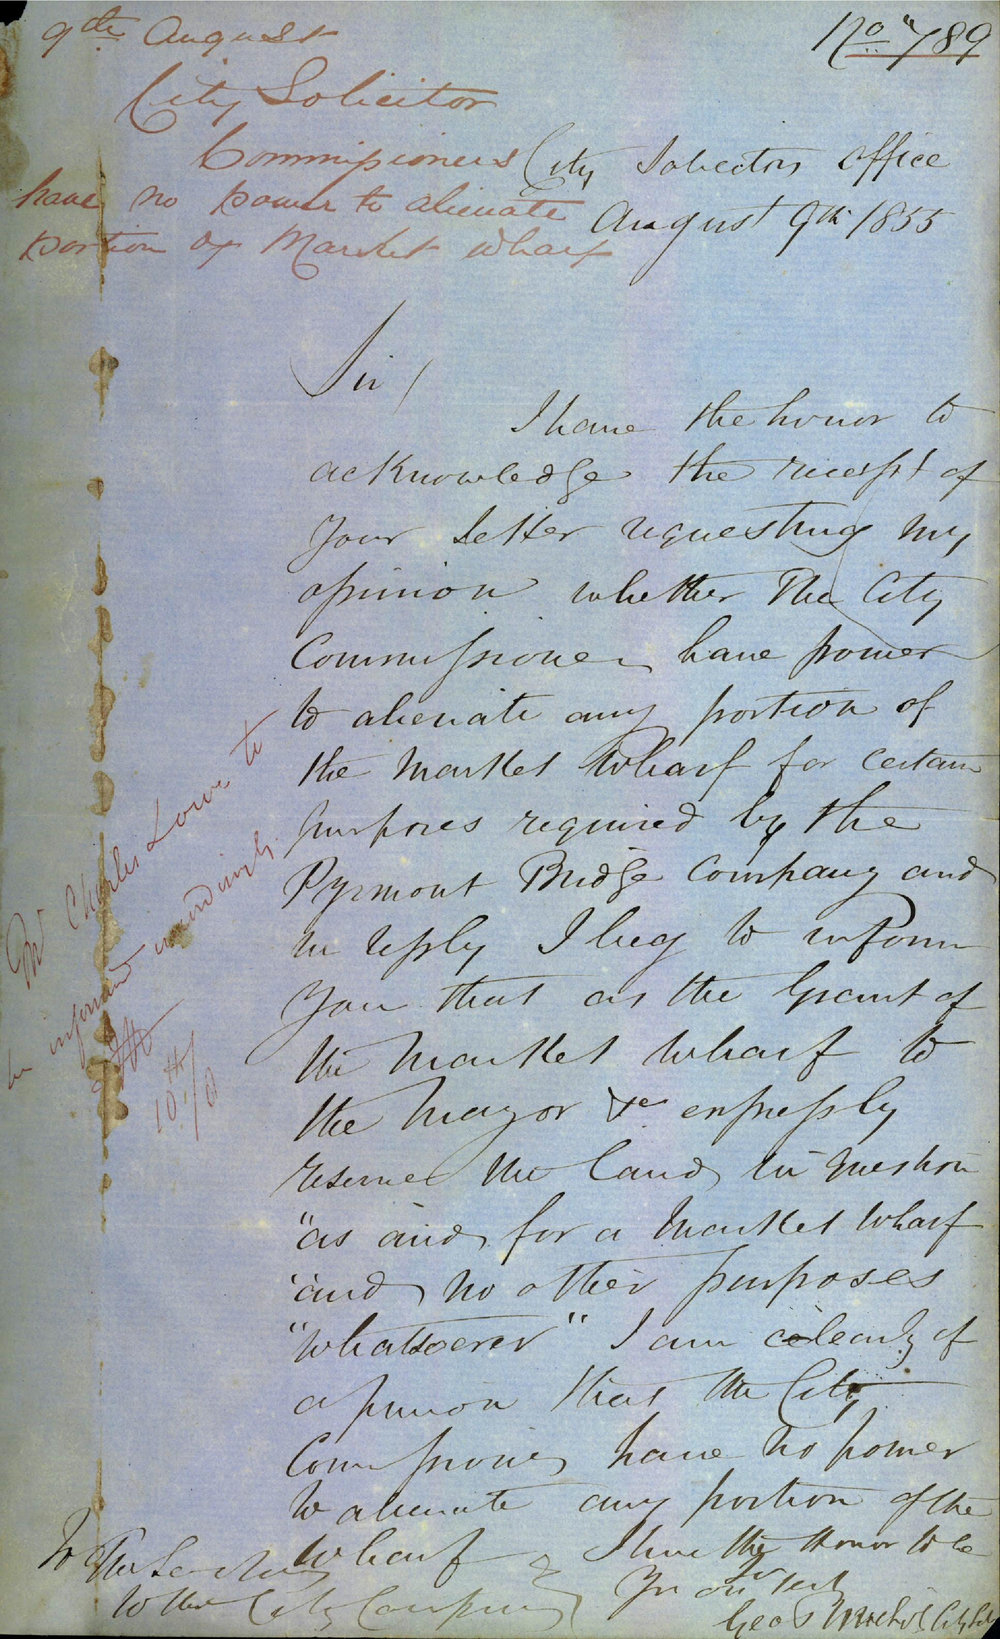 No 789
9th August
City Solicitor
Commissioners
have no power to alienate
portion of Market Wharf
City Solicitors Office
August 9th 1855
Sir/
I have the honor to
acknowledge the receipt of
Your letter requesting my
opinion whether The City
Commissioners have power
to alienate any portion of
the Market Wharf for certain
purposes required by the
Pyrmont Bridge Company and
in reply I beg to inform
You that as the Grant of
the Market Wharf to
the Mayor &c expressly
reserves the land in question
"as and for a Market Wharf
"and no other purposes
"whatsoever" I am clearly of
opinion that the City
Commissioners have no power
to alienate any portion of the
Wharf
I have the Honor to be
Sir
Yr Ob Sert
Geo City Sol
To The Secretary
to the City Commissioners
Mr Charles Lowe to
be informed accordingly
10th/8